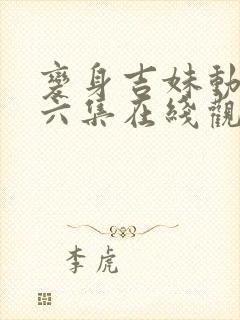 變身吉妹動
六集在綫觀
李虎